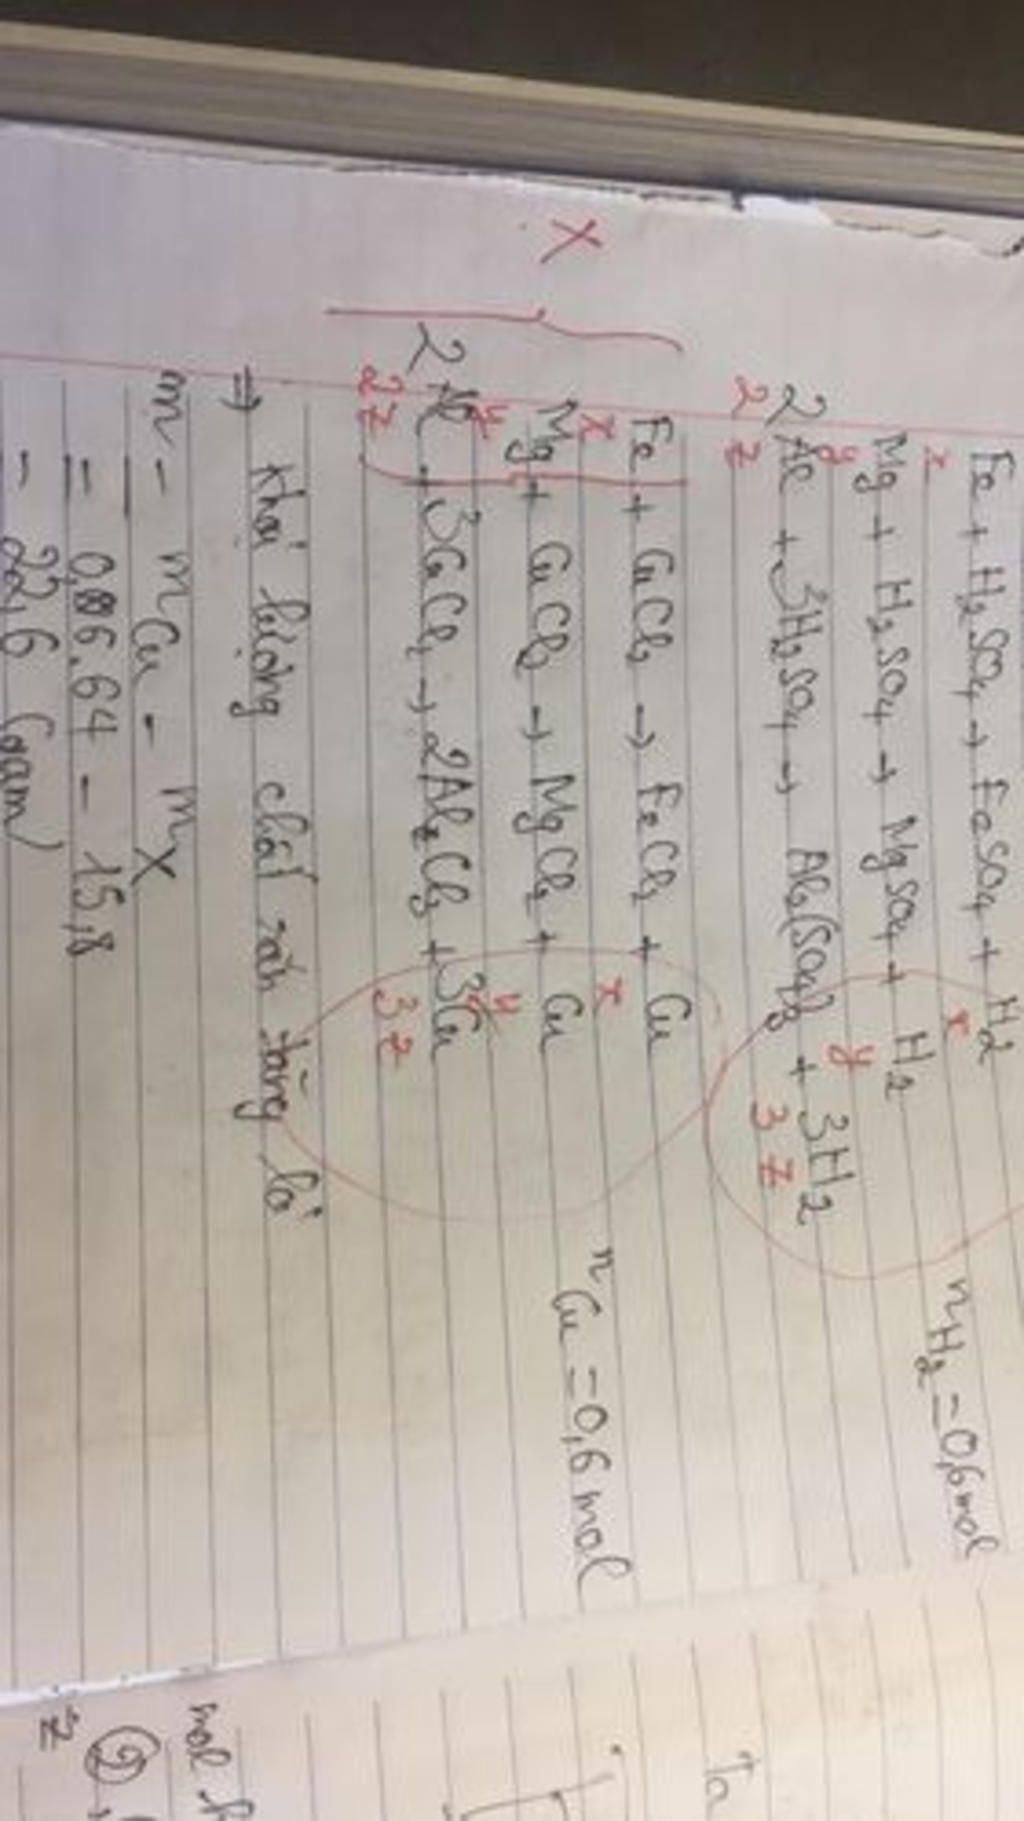 Fe + H₂SO₄ → FeSO₄ + H₂
x x
Mg + H₂SO₄ → MgSO₄ + H₂ nH₂ = 0,6 mol
y y
2Al + 3H₂SO₄ → Al₂(SO₄)₃ + 3H₂
2z 3z
Fe + CuCl₂ → FeCl₂ + Cu
x x
X Mg + CuCl₂ → MgCl₂ + Cu nCu = 0,6 mol
y y
2Al + 3CuCl₂ → 2Al₂Cl₃ + 3Cu
2z 3z
⇒ khối lượng chất rắn tăng là
m = mCu - mX
= 0,6.64 - 15,8
= 22,6 (gam)
Ta
mol
②
z